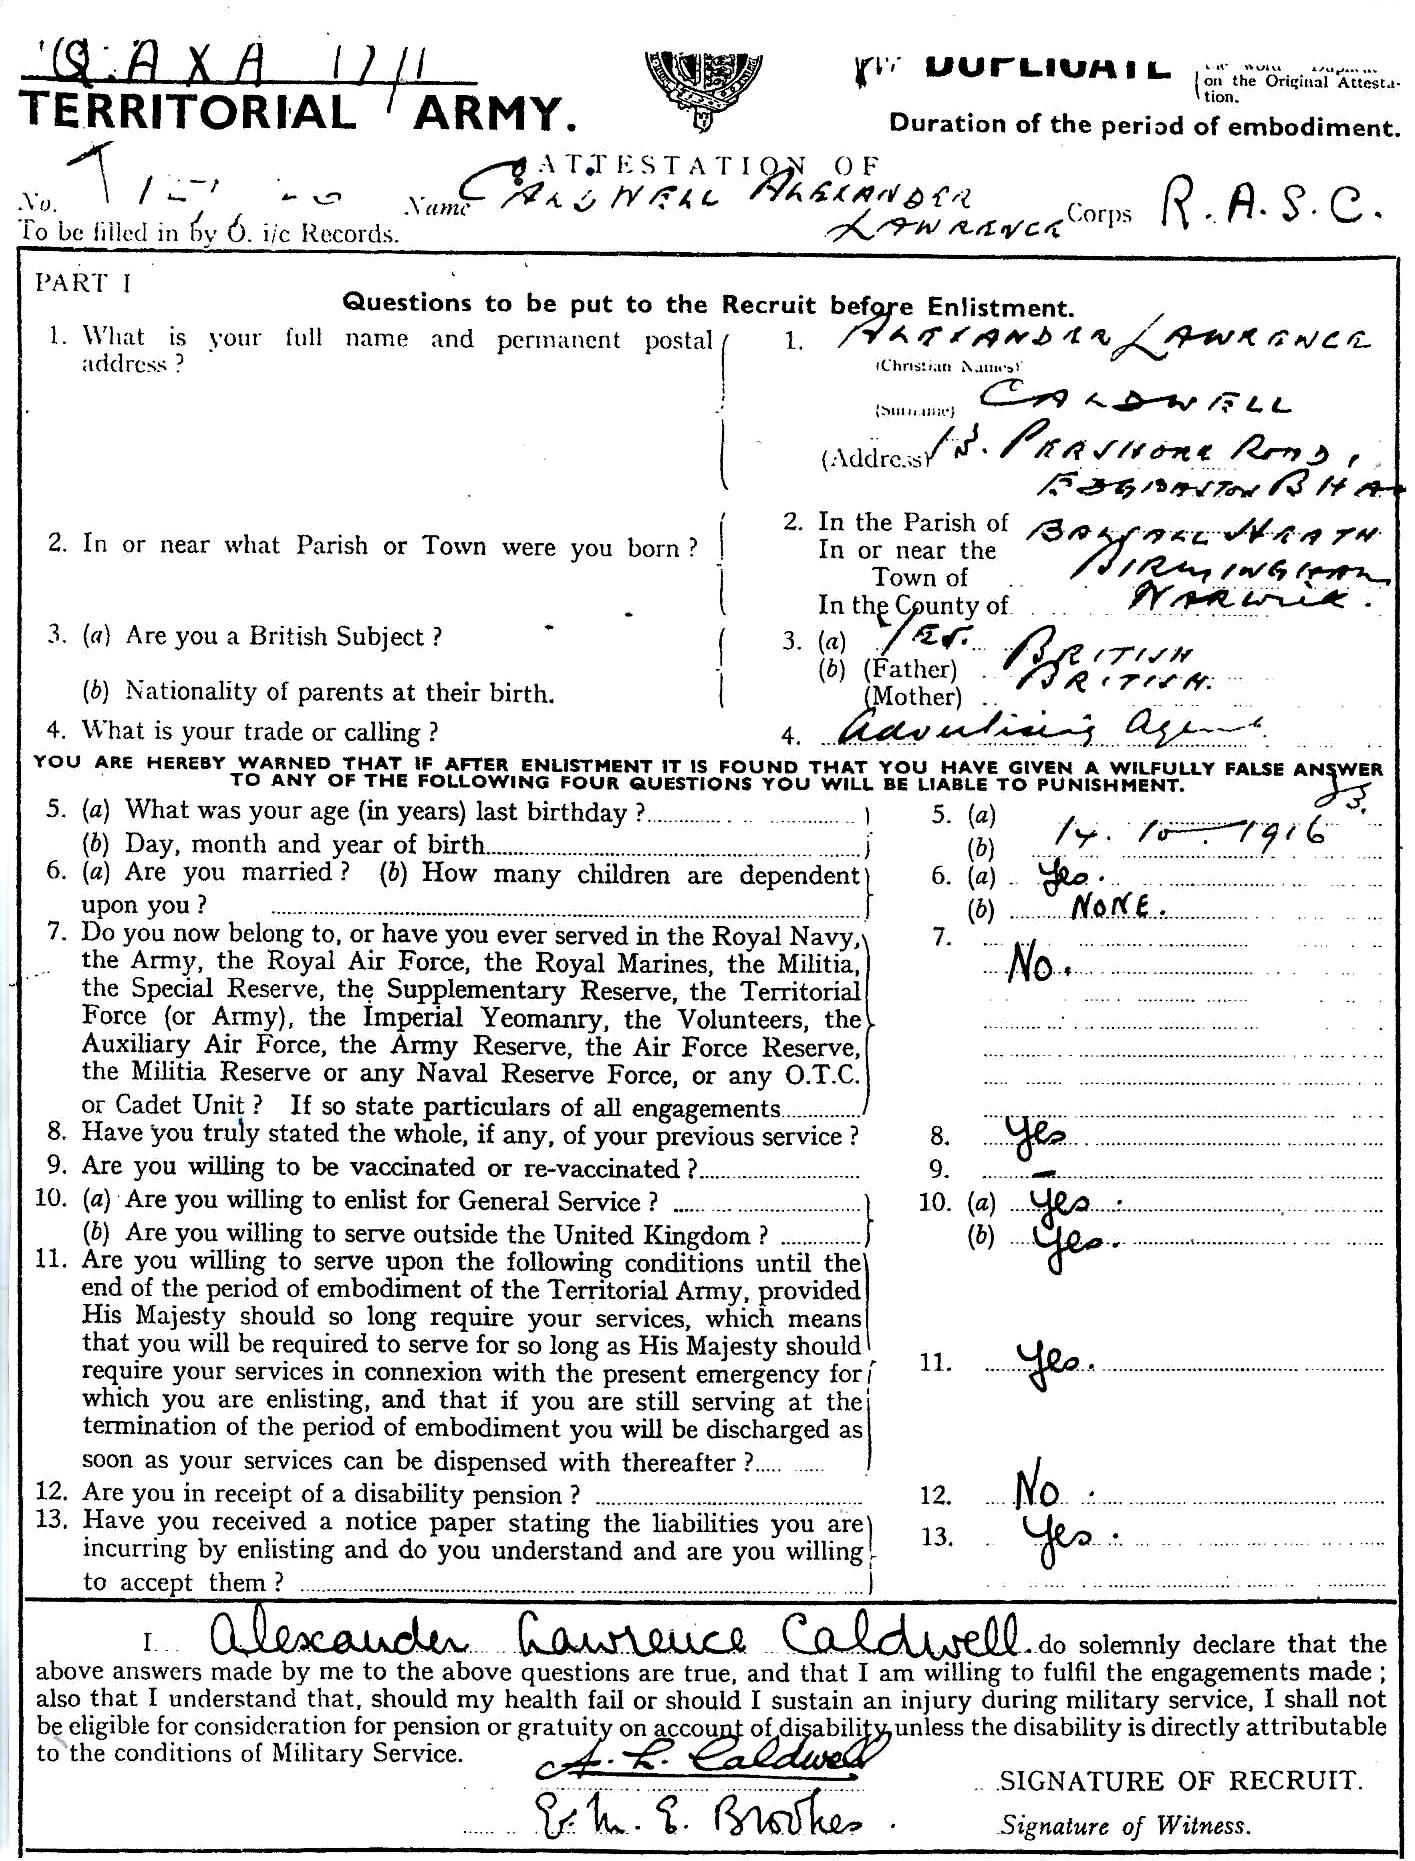 TERRITORIAL ARMY.
DUPLICATE
on the Original Attesta-
tion.
Duration of the period of embodiment.
ATTESTATION OF
No. Name CALDWELL ALEXANDER LAWRENCE Corps R.A.S.C.
To be filled in by O. i/c Records.
PART I
Questions to be put to the Recruit before Enlistment.
1. What is your full name and permanent postal address ?
1. ALEXANDER LAWRENCE
(Christian Names)
CALDWELL
(Surname)
(Address) 13. PERSHORE ROAD,
EDGBASTON BHAM
2. In or near what Parish or Town were you born ?
2. In the Parish of BALSALL HEATH
In or near the
Town of BIRMINGHAM
In the County of WARWICK.
3. (a) Are you a British Subject ?
3. (a) YES.
(b) Nationality of parents at their birth.
(b) (Father) BRITISH
(Mother) BRITISH.
4. What is your trade or calling ?
4. Advertising Agent
YOU ARE HEREBY WARNED THAT IF AFTER ENLISTMENT IT IS FOUND THAT YOU HAVE GIVEN A WILFULLY FALSE ANSWER
TO ANY OF THE FOLLOWING FOUR QUESTIONS YOU WILL BE LIABLE TO PUNISHMENT.
5. (a) What was your age (in years) last birthday ? 5. (a) 23.
(b) Day, month and year of birth (b) 14. 10. 1916
6. (a) Are you married ? (b) How many children are dependent 6. (a) Yes.
upon you ? (b) NONE.
7. Do you now belong to, or have you ever served in the Royal Navy, 7.
the Army, the Royal Air Force, the Royal Marines, the Militia, No.
the Special Reserve, the Supplementary Reserve, the Territorial
Force (or Army), the Imperial Yeomanry, the Volunteers, the
Auxiliary Air Force, the Army Reserve, the Air Force Reserve,
the Militia Reserve or any Naval Reserve Force, or any O.T.C.
or Cadet Unit ? If so state particulars of all engagements
8. Have you truly stated the whole, if any, of your previous service ? 8. Yes
9. Are you willing to be vaccinated or re-vaccinated ? 9. –
10. (a) Are you willing to enlist for General Service ? 10. (a) Yes.
(b) Are you willing to serve outside the United Kingdom ? (b) Yes.
11. Are you willing to serve upon the following conditions until the
end of the period of embodiment of the Territorial Army, provided
His Majesty should so long require your services, which means
that you will be required to serve for so long as His Majesty should
require your services in connexion with the present emergency for 11. Yes.
which you are enlisting, and that if you are still serving at the
termination of the period of embodiment you will be discharged as
soon as your services can be dispensed with thereafter ?
12. Are you in receipt of a disability pension ? 12. No.
13. Have you received a notice paper stating the liabilities you are 13. Yes.
incurring by enlisting and do you understand and are you willing
to accept them ?
I Alexander Lawrence Caldwell do solemnly declare that the
above answers made by me to the above questions are true, and that I am willing to fulfil the engagements made ;
also that I understand that, should my health fail or should I sustain an injury during military service, I shall not
be eligible for consideration for pension or gratuity on account of disability unless the disability is directly attributable
to the conditions of Military Service.
A. L. Caldwell SIGNATURE OF RECRUIT.
E. M. E. Brookes. Signature of Witness.